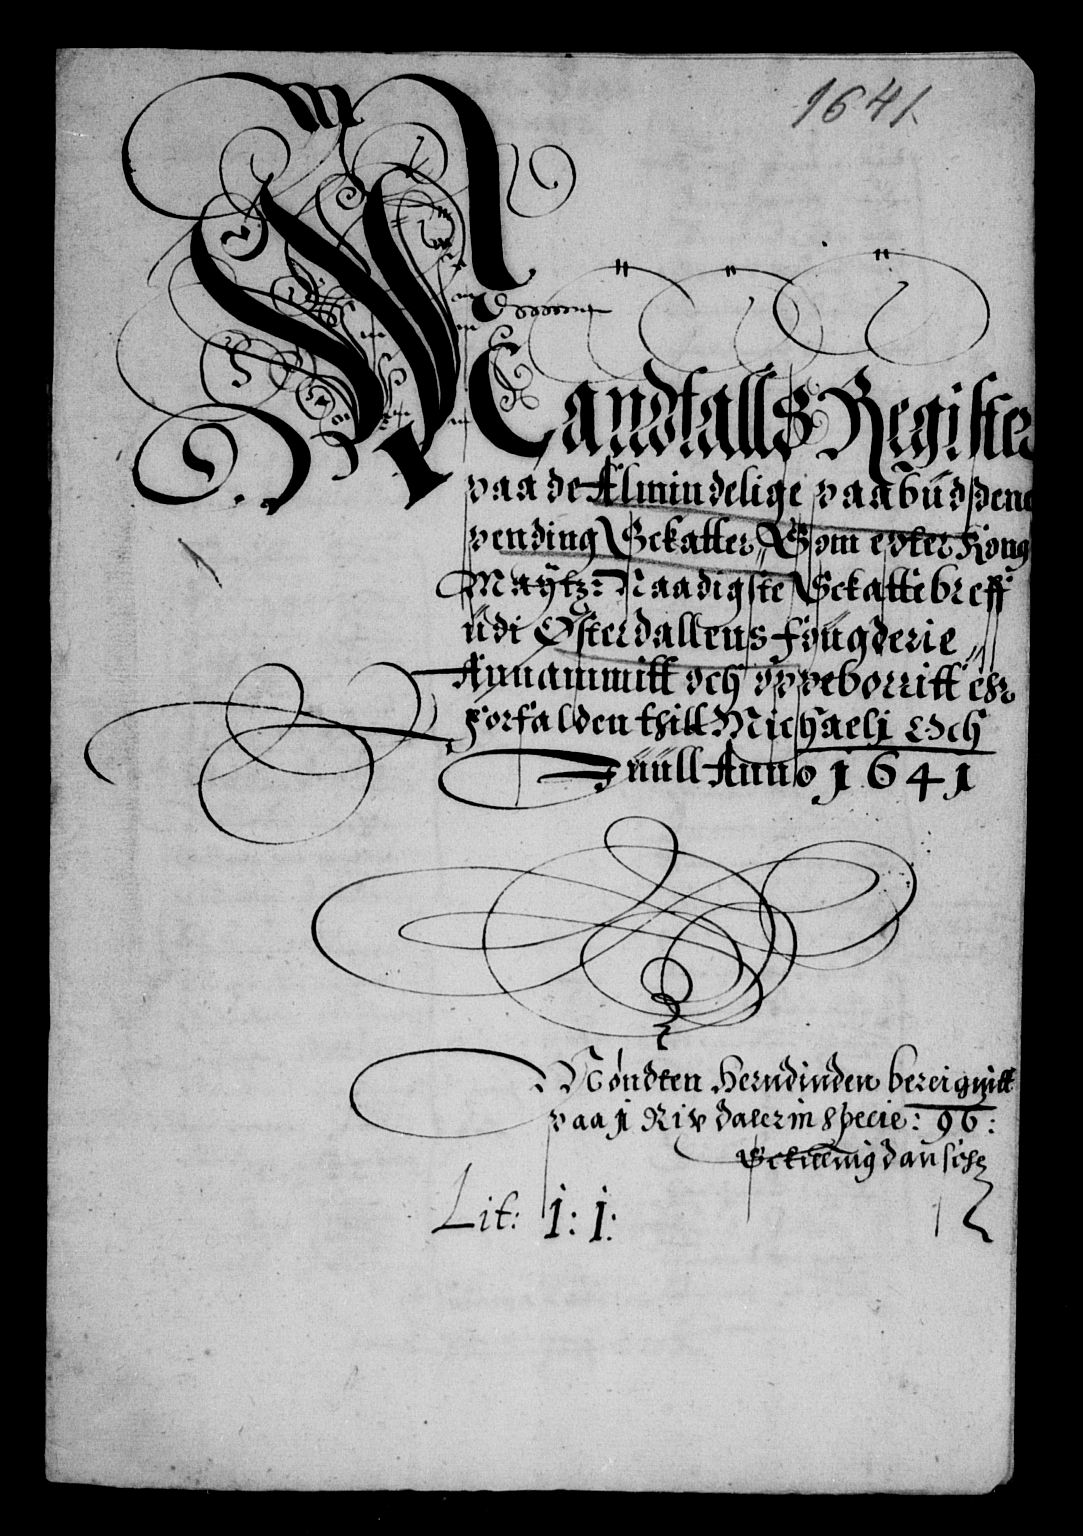 1641
Mandtalls Register
paa de Almindelige paabudsdene
pending Sckatter, Som epter Kong
Maÿtz: Naadigste Sckattebreff
udi Østerdallens fougderie
Annammitt och oppeborritt ehr
forfalden thill Michaelj och
Juull Anno 1641
Mõndten herudinden bereignitt
paa j Rix daler in specie: 96:
Sckilling dansche
Lit: 1: 1: